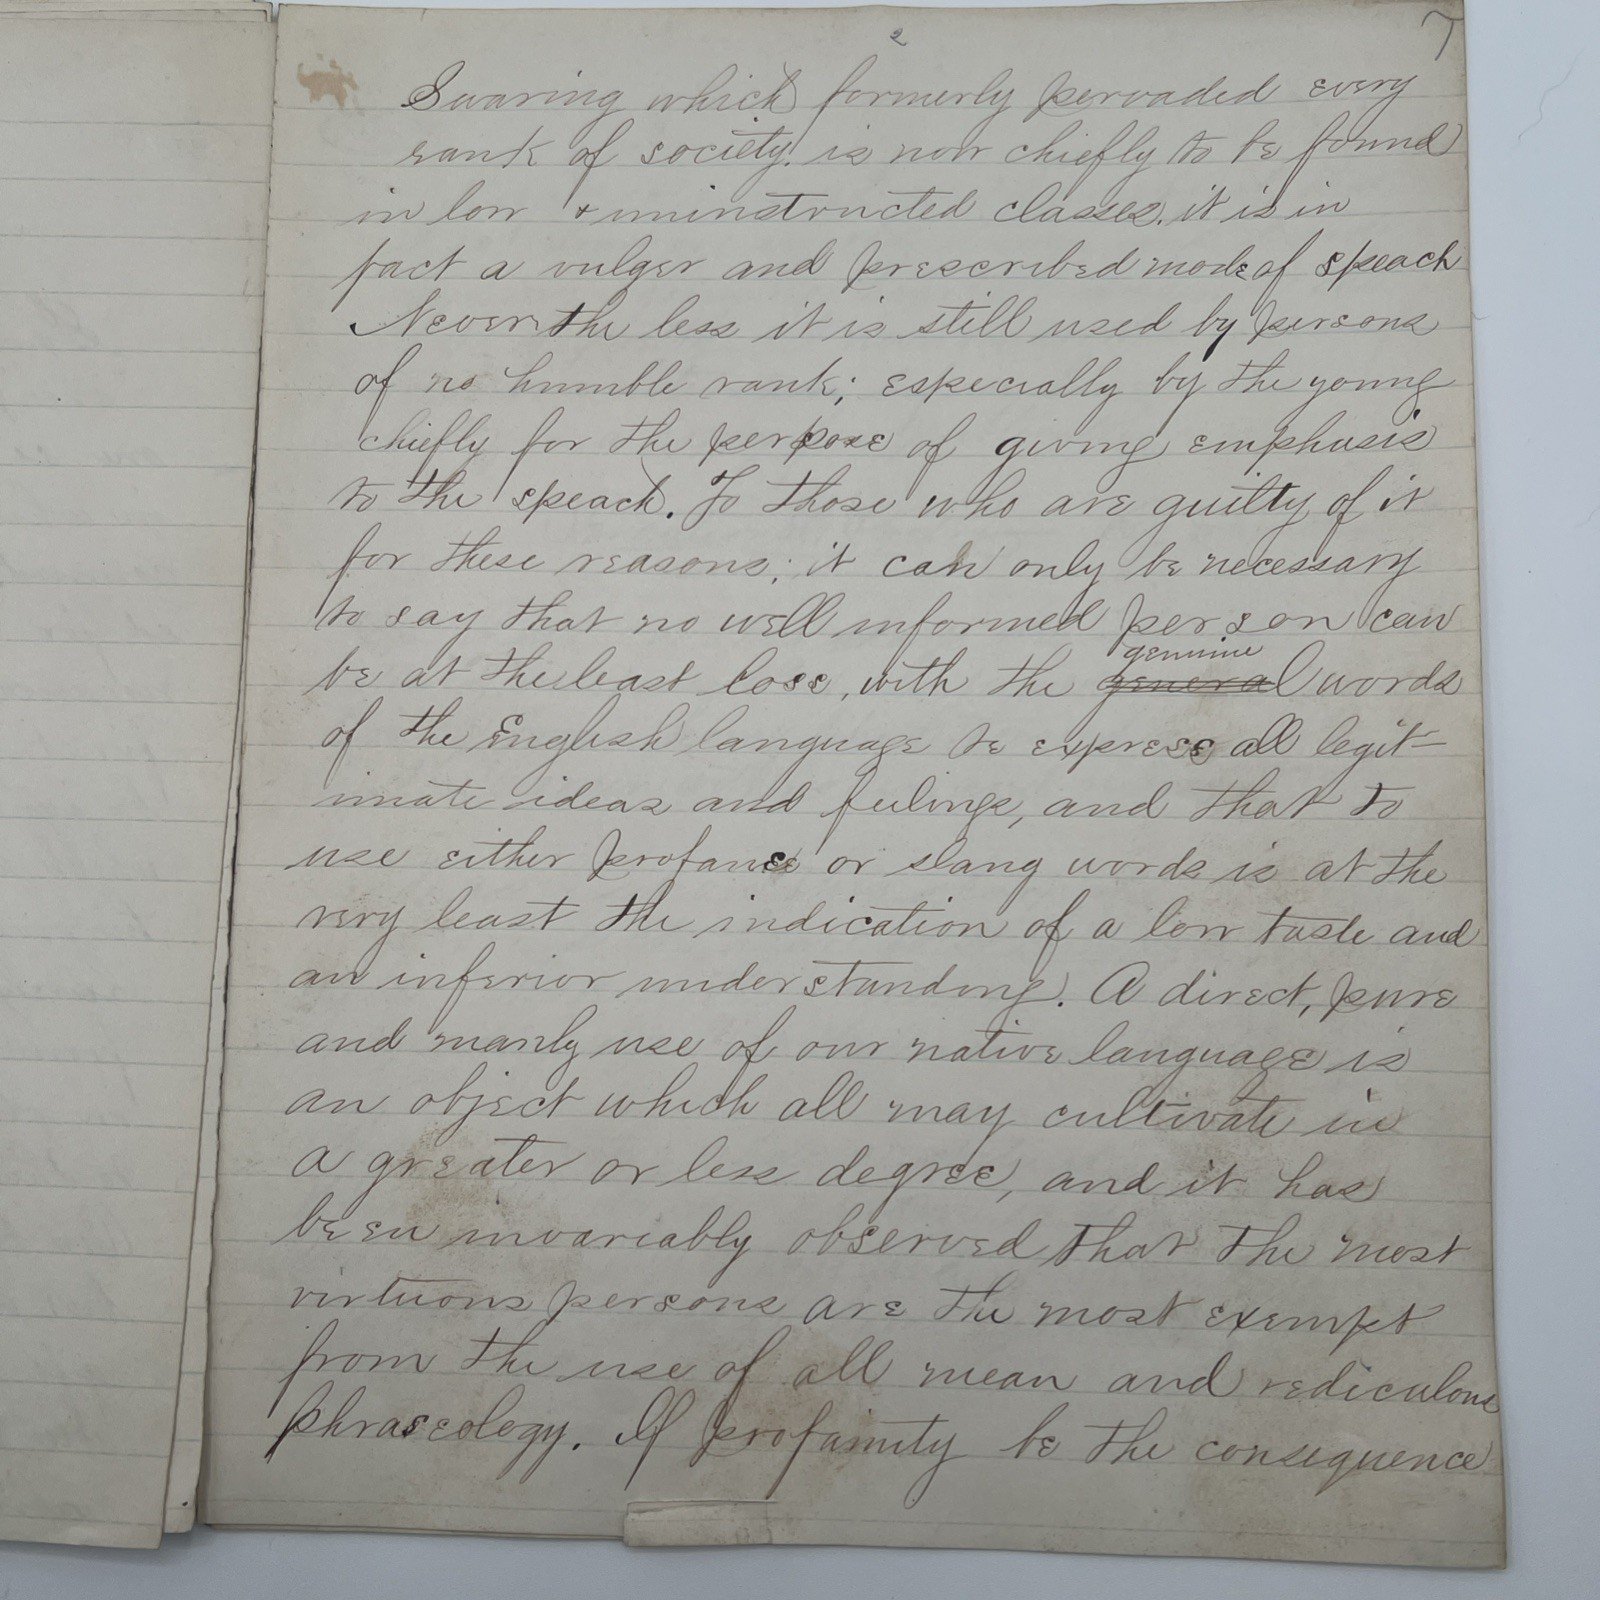 2
7
Swaring which formerly pervaded every
rank of society. is now chiefly to be found
in low + uninstructed classes. it is in
fact a vulger and prescribed mode of speach
Never the less it is still used by persons
of no humble rank; especially by the young
chiefly for the perpose of giving emphasis
to the speach. To those who are guilty of it
for these reasons; it can only be necessary
to say that no well informed person can
be at the least loss, with the genuine general words
of the English language to express all legit-
imate ideas and feelings, and that to
use either profane or slang words is at the
very least the indication of a low taste and
an inferior understanding. A direct, pure
and manly use of our native language is
an object which all may cultivate in
a greater or less degree, and it has
been invariably observed that the most
virtuous persons are the most exempt
from the use of all mean and rediculous
phraseology. If profainity be the consequence